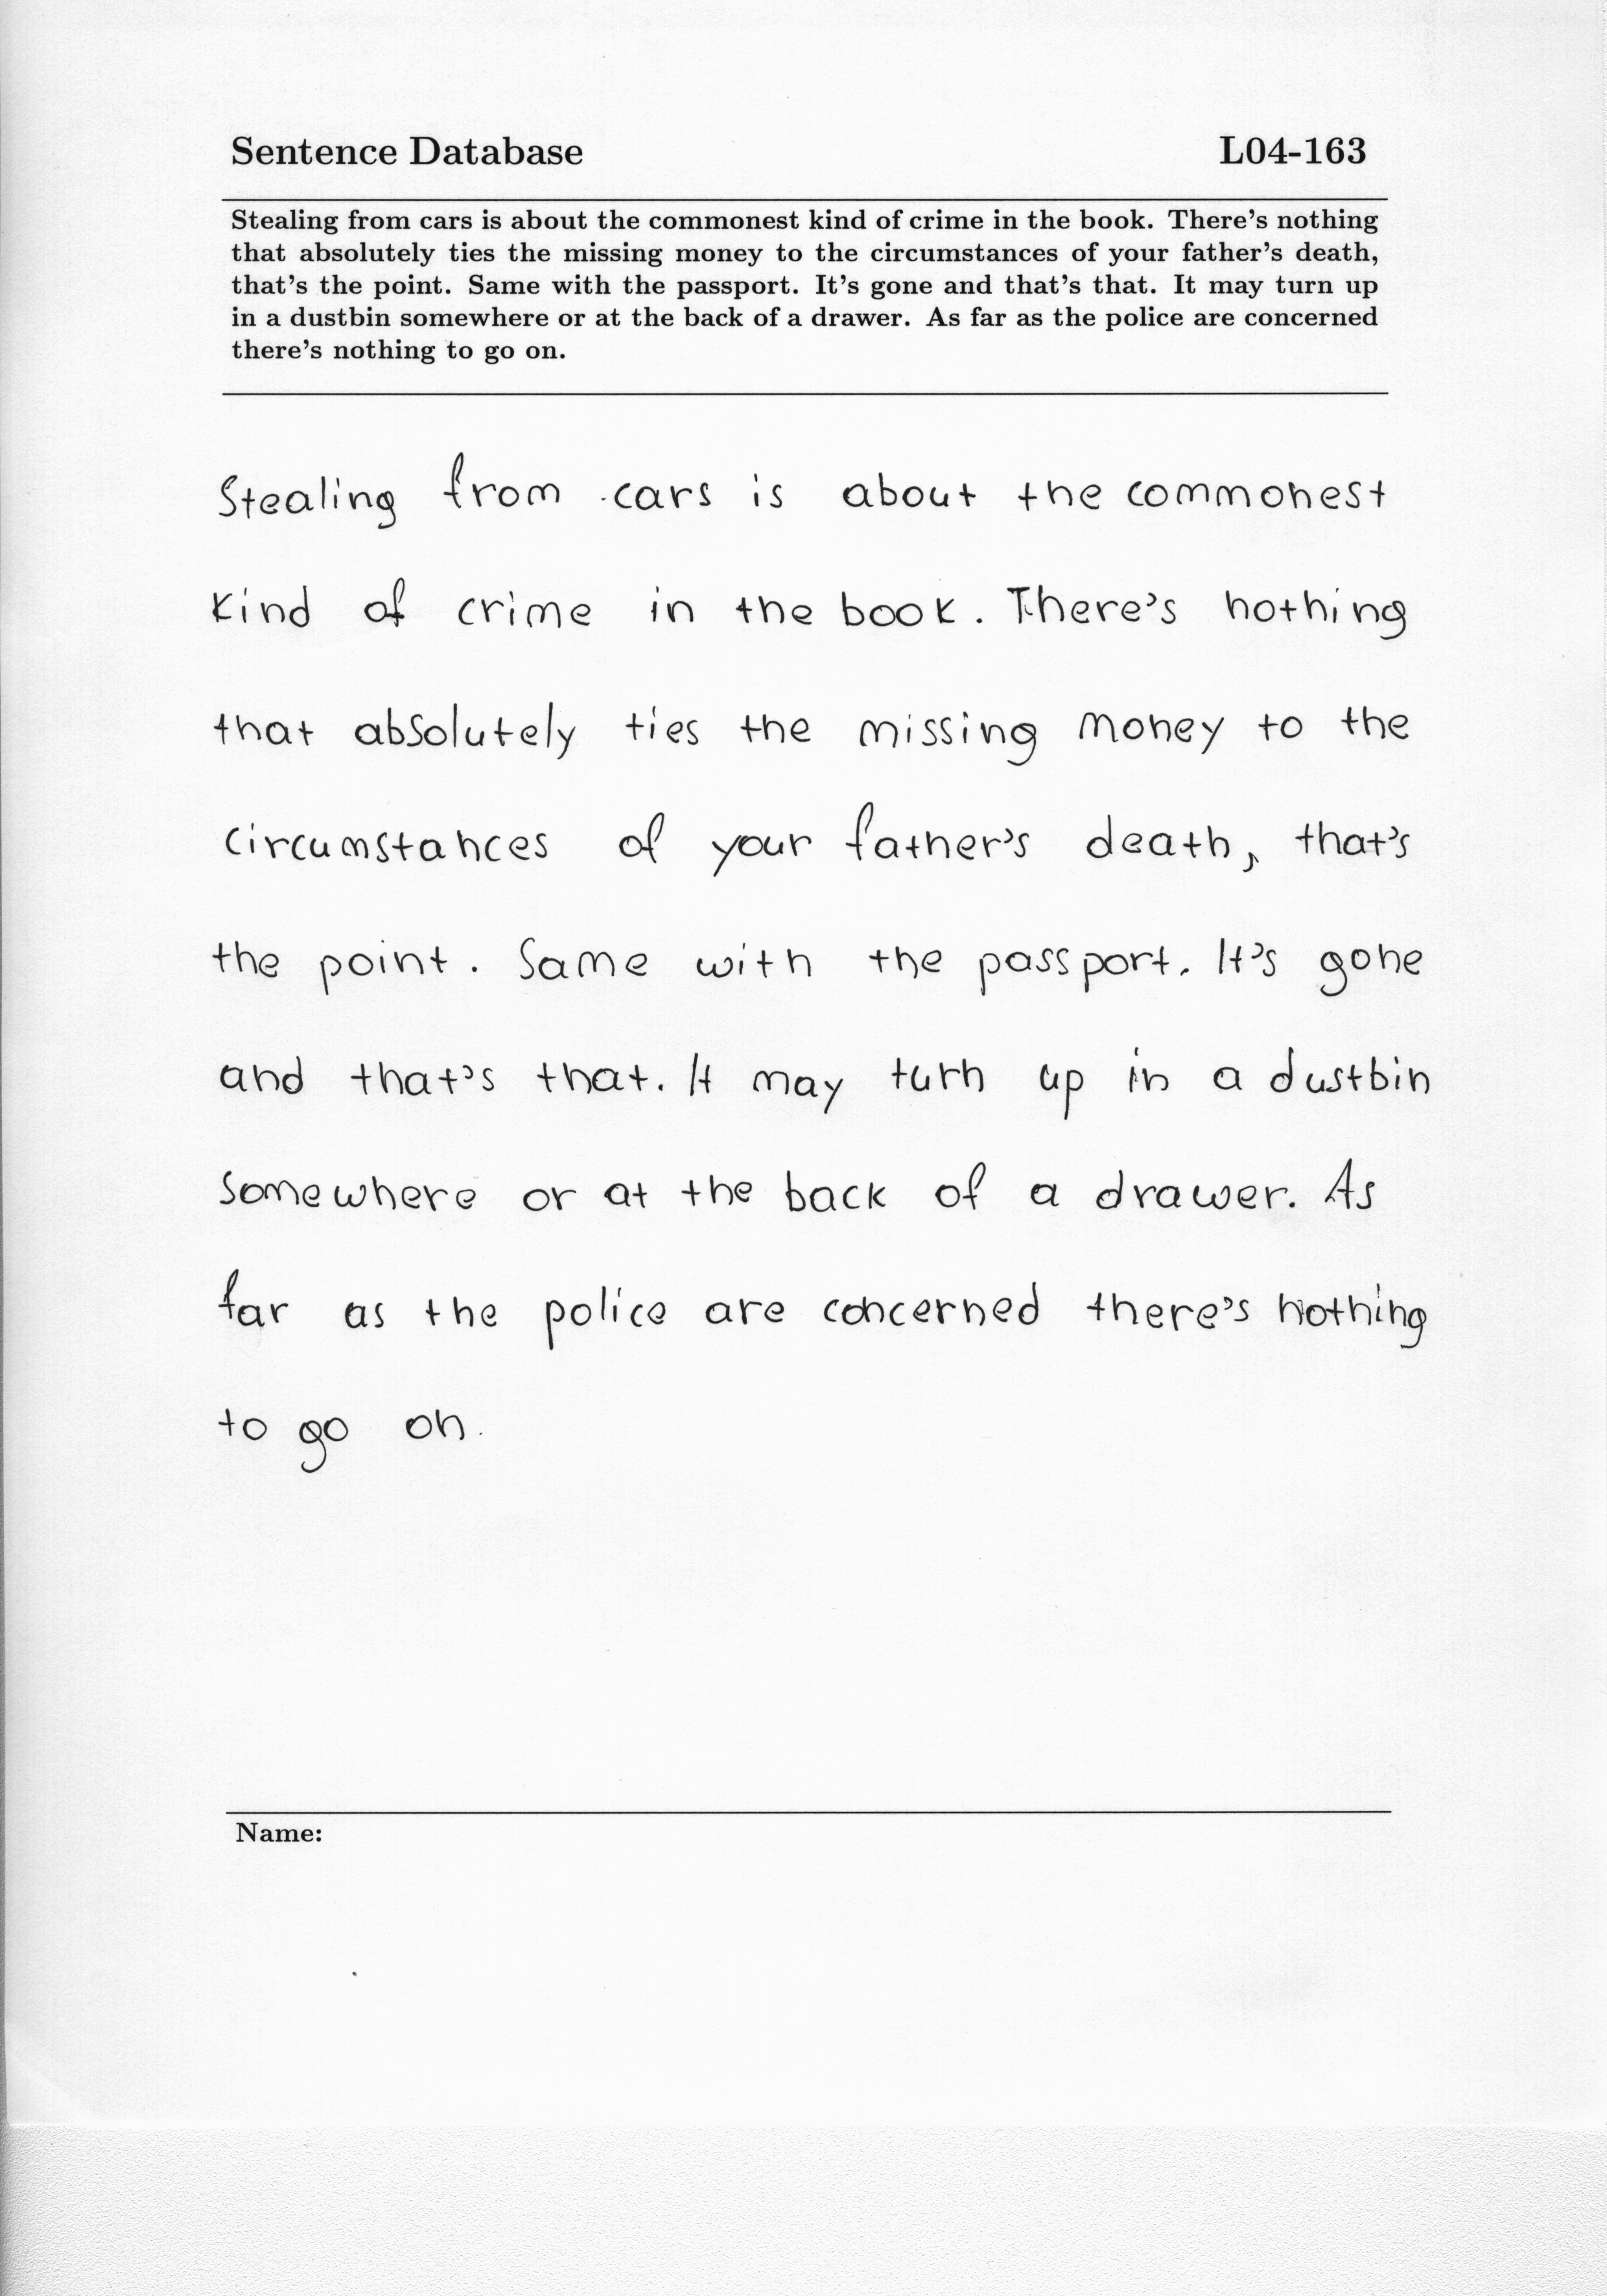 Sentence Database L04-163
Stealing from cars is about the commonest kind of crime in the book. There's nothing
that absolutely ties the missing money to the circumstances of your father's death,
that's the point. Same with the passport. It's gone and that's that. It may turn up
in a dustbin somewhere or at the back of a drawer. As far as the police are concerned
there's nothing to go on.
Stealing from cars is about the commonest
kind of crime in the book. There's nothing
that absolutely ties the missing money to the
circumstances of your father's death, that's
the point. Same with the passport. It's gone
and that's that. It may turn up in a dustbin
somewhere or at the back of a drawer. As
far as the police are concerned there's nothing
to go on.
Name: